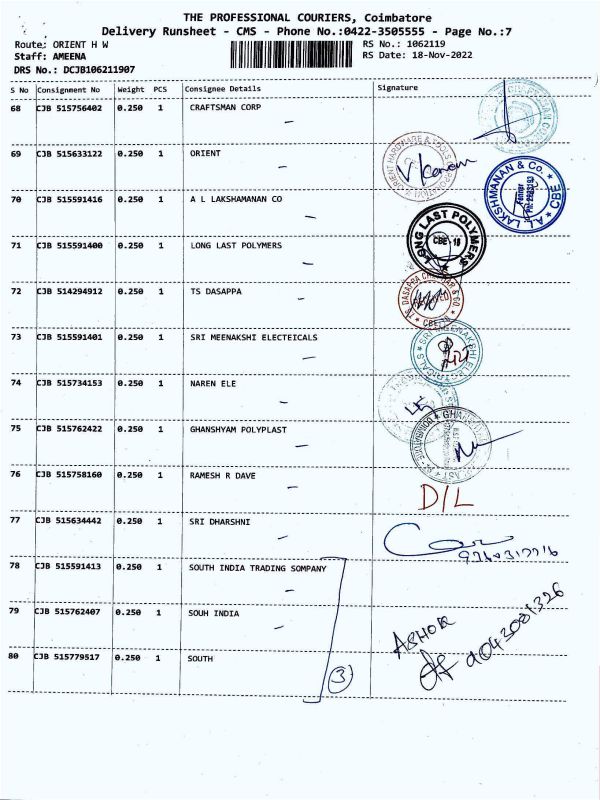 THE PROFESSIONAL COURIERS, Coimbatore
Delivery Runsheet - CMS - Phone No.:0422-3505555 - Page No.:7
Route: ORIENT H W RS No.: 1062119
Staff: AMEENA RS Date: 18-Nov-2022
DRS No.: DCJB106211907
S No Consignment No Weight PCS Consignee Details Signature
68 CJB 515756402 0.250 1 CRAFTSMAN CORP
69 CJB 515633122 0.250 1 ORIENT
70 CJB 515591416 0.250 1 A L LAKSHAMANAN CO
A.L. LAKSHMANAN & Co. CBE
71 CJB 515591400 0.250 1 LONG LAST POLYMERS
LONG LAST POLYMERS CBE-18
72 CJB 514294912 0.250 1 TS DASAPPA
73 CJB 515591401 0.250 1 SRI MEENAKSHI ELECTEICALS
74 CJB 515734153 0.250 1 NAREN ELE
75 CJB 515762422 0.250 1 GHANSHYAM POLYPLAST
76 CJB 515758160 0.250 1 RAMESH R DAVE
D/L
77 CJB 515634442 0.250 1 SRI DHARSHNI
78 CJB 515591413 0.250 1 SOUTH INDIA TRADING SOMPANY
79 CJB 515762407 0.250 1 SOUH INDIA
ASHOK
80 CJB 515779517 0.250 1 SOUTH
3